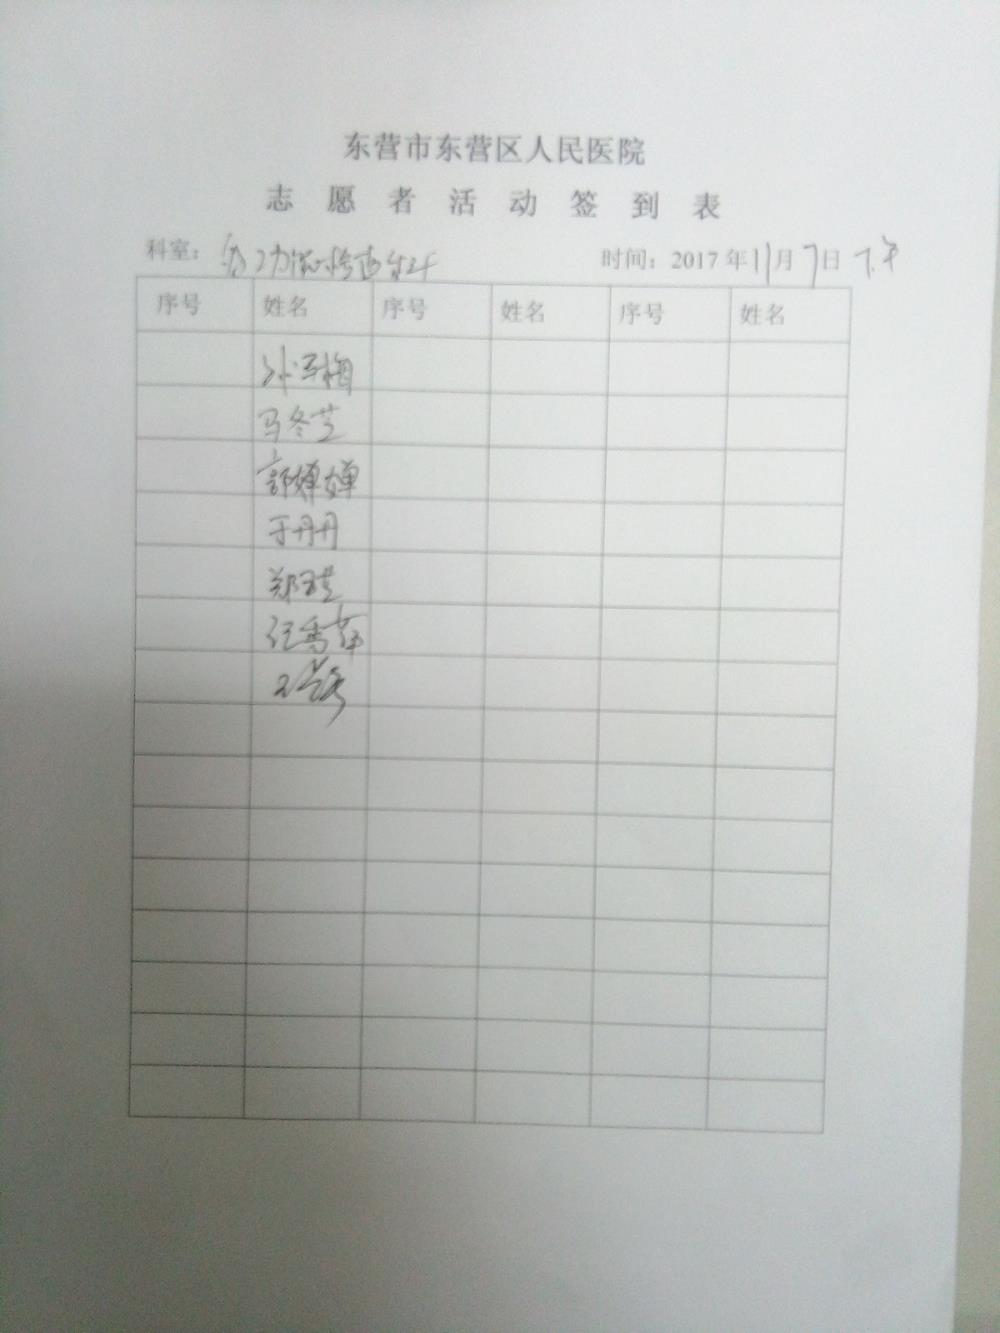 东营市东营区人民医院
志愿者活动签到表
科室: 功能检查科 时间: 2017年11月7日 下午
序号 姓名 序号 姓名 序号 姓名
孙军梅
马冬芝
郭婵婵
于丹丹
郑
任秀萍